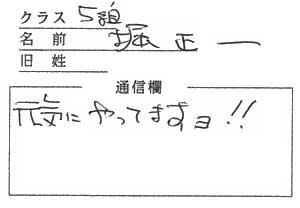 クラス 5組
名前 堀正一
旧姓
通信欄
元気にやってますヨ!!